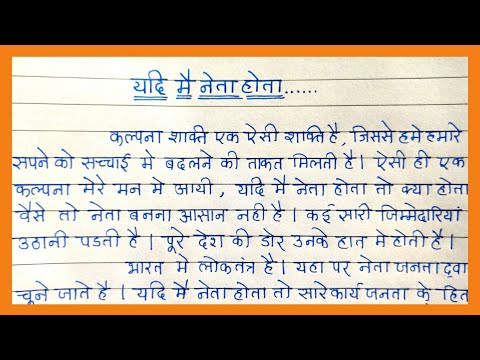 यदि मै नेता होता......
कल्पना शक्ति एक ऐसी शक्ति है, जिससे हमे हमारे
सपने को सच्चाई मे बदलने की ताकत मिलती है। ऐसी ही एक
कल्पना मेरे मन मे आयी, यदि मै नेता होता तो क्या होता
वैसे तो नेता बनना आसान नही है। कई सारी जिम्मेदारियां
उठानी पडती है। पूरे देश की डोर उनके हात मे होती है।
भारत मे लोकतंत्र है। यहा पर नेता जनता द्वा
चूने जाते है। यदि मै नेता होता तो सारे कार्य जनता के हित